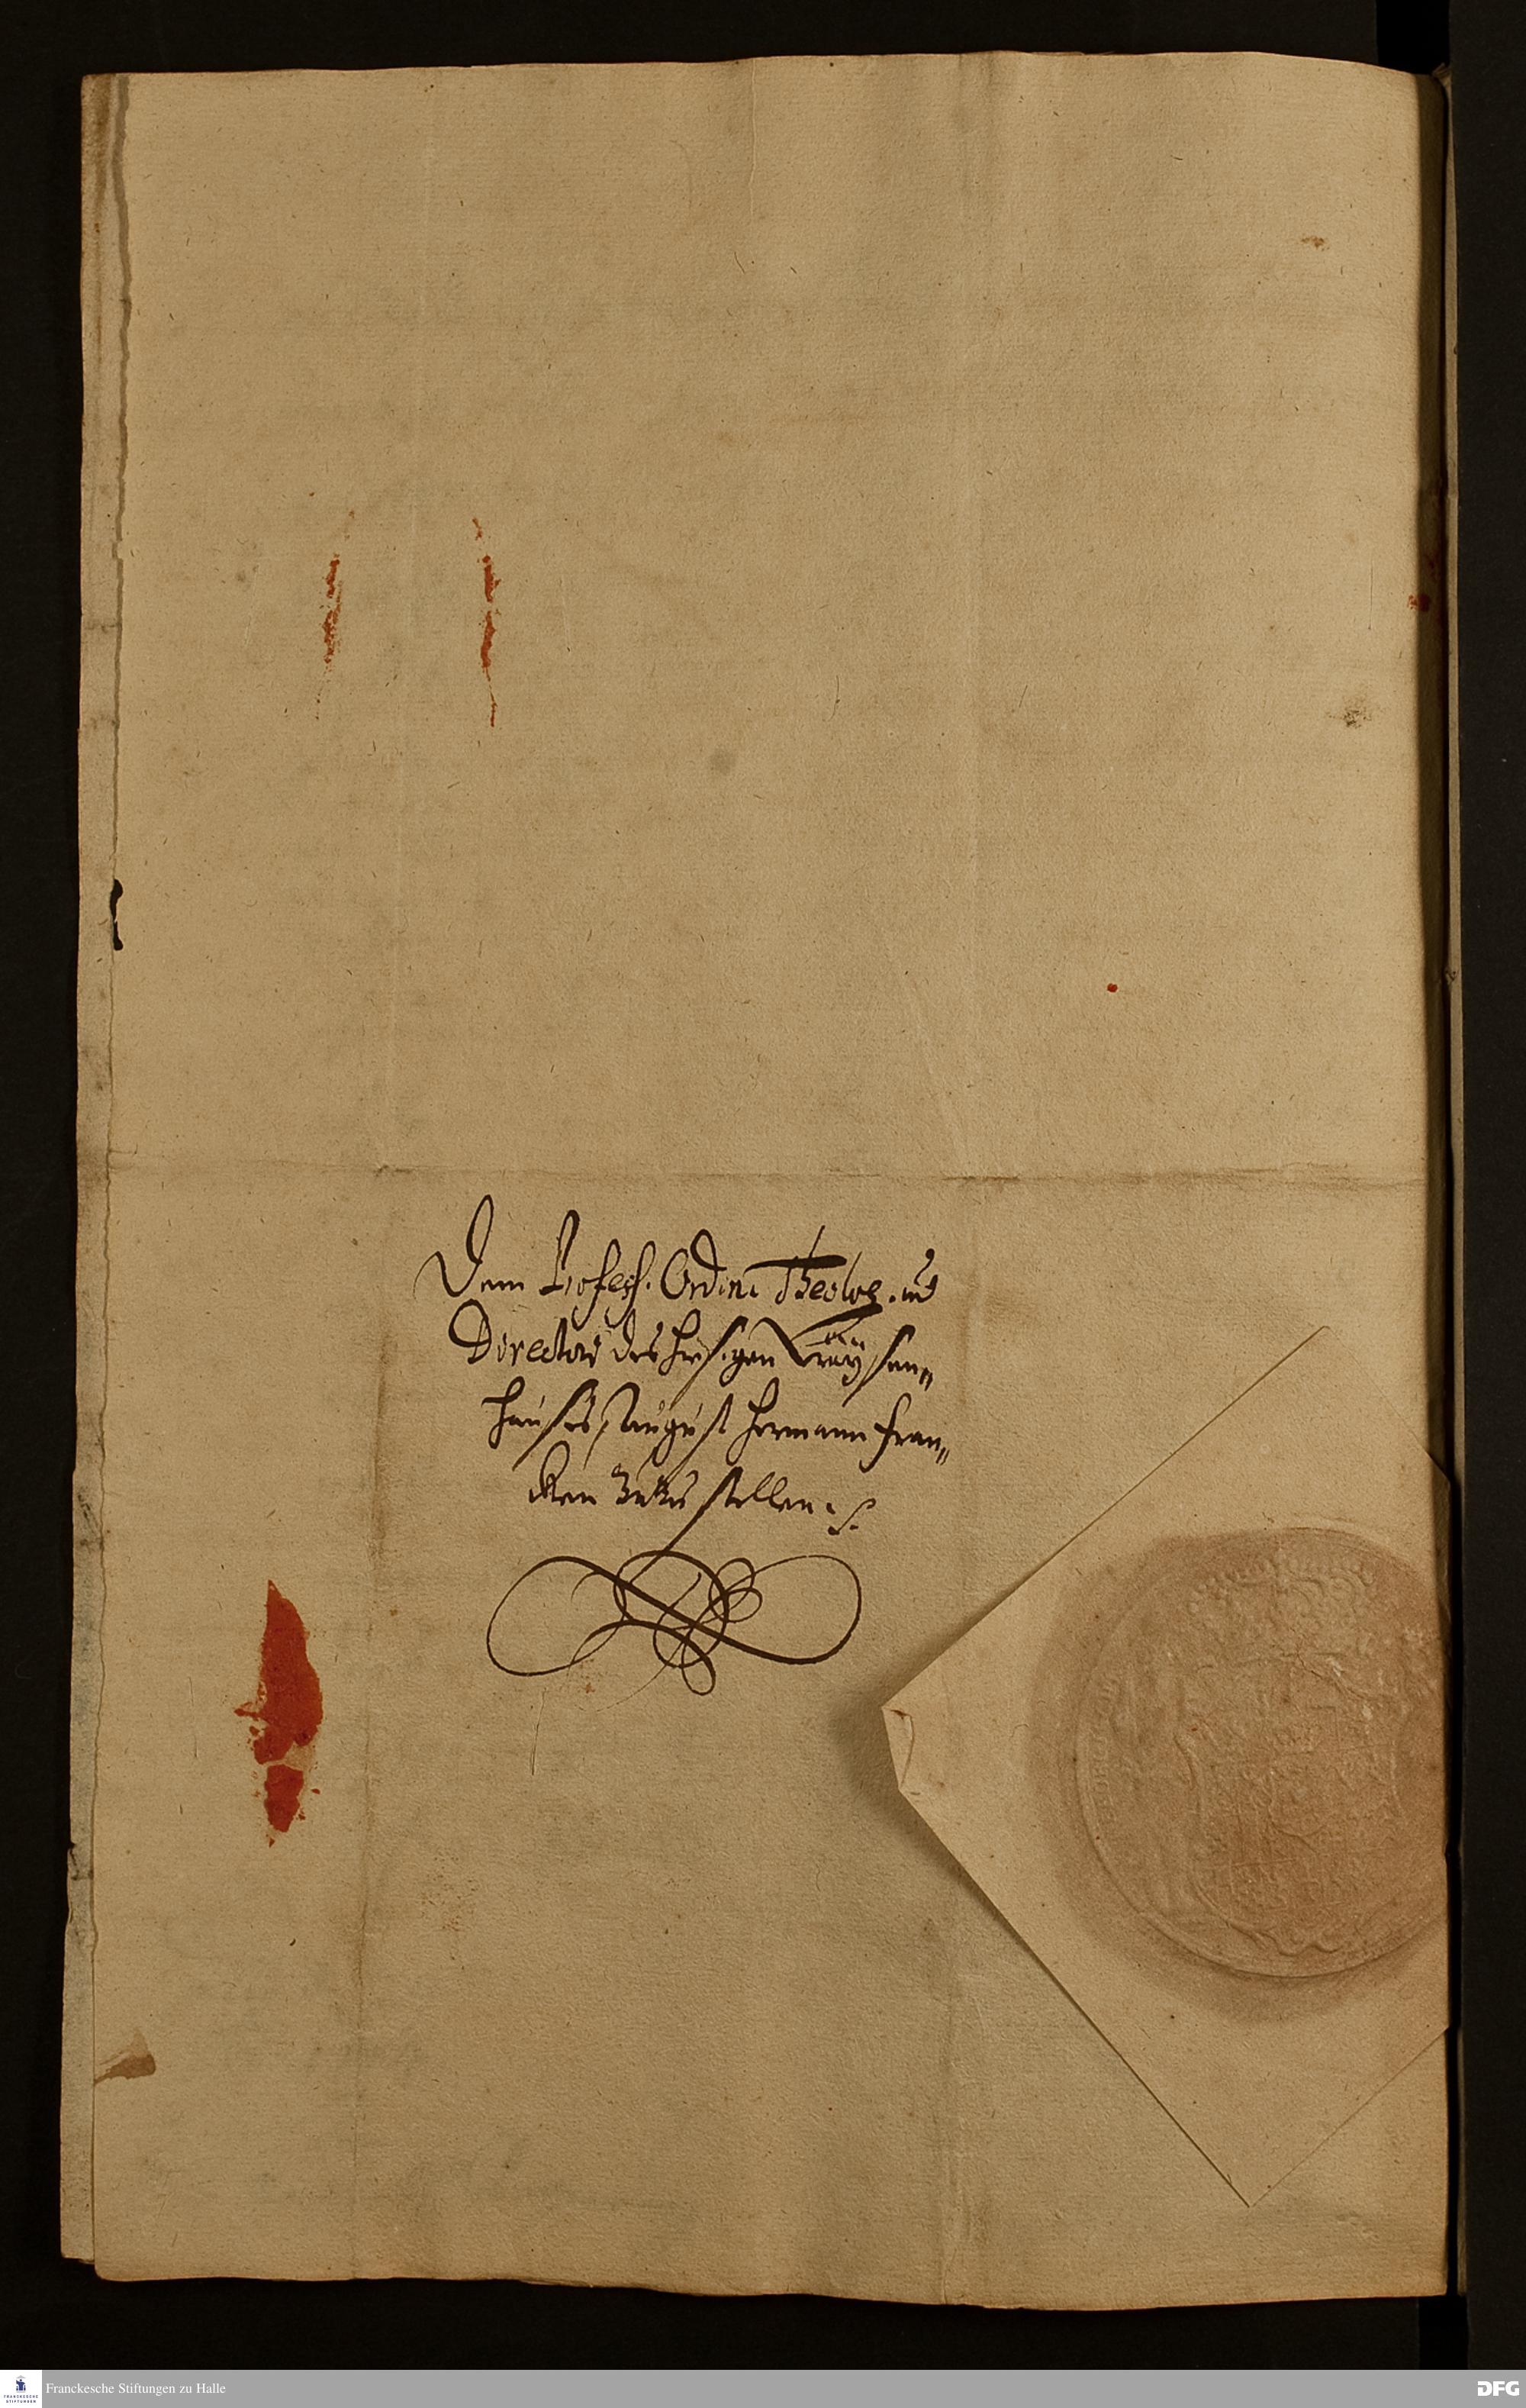 Dem Profess. Ordin. Theolog. und
Directori des hiesigen Waysen„
hauses, August Hermann Fran„
cken zuzustellen.
Franckesche Stiftungen zu Halle
FRANCKESCHE
STIFTUNGEN
DFG